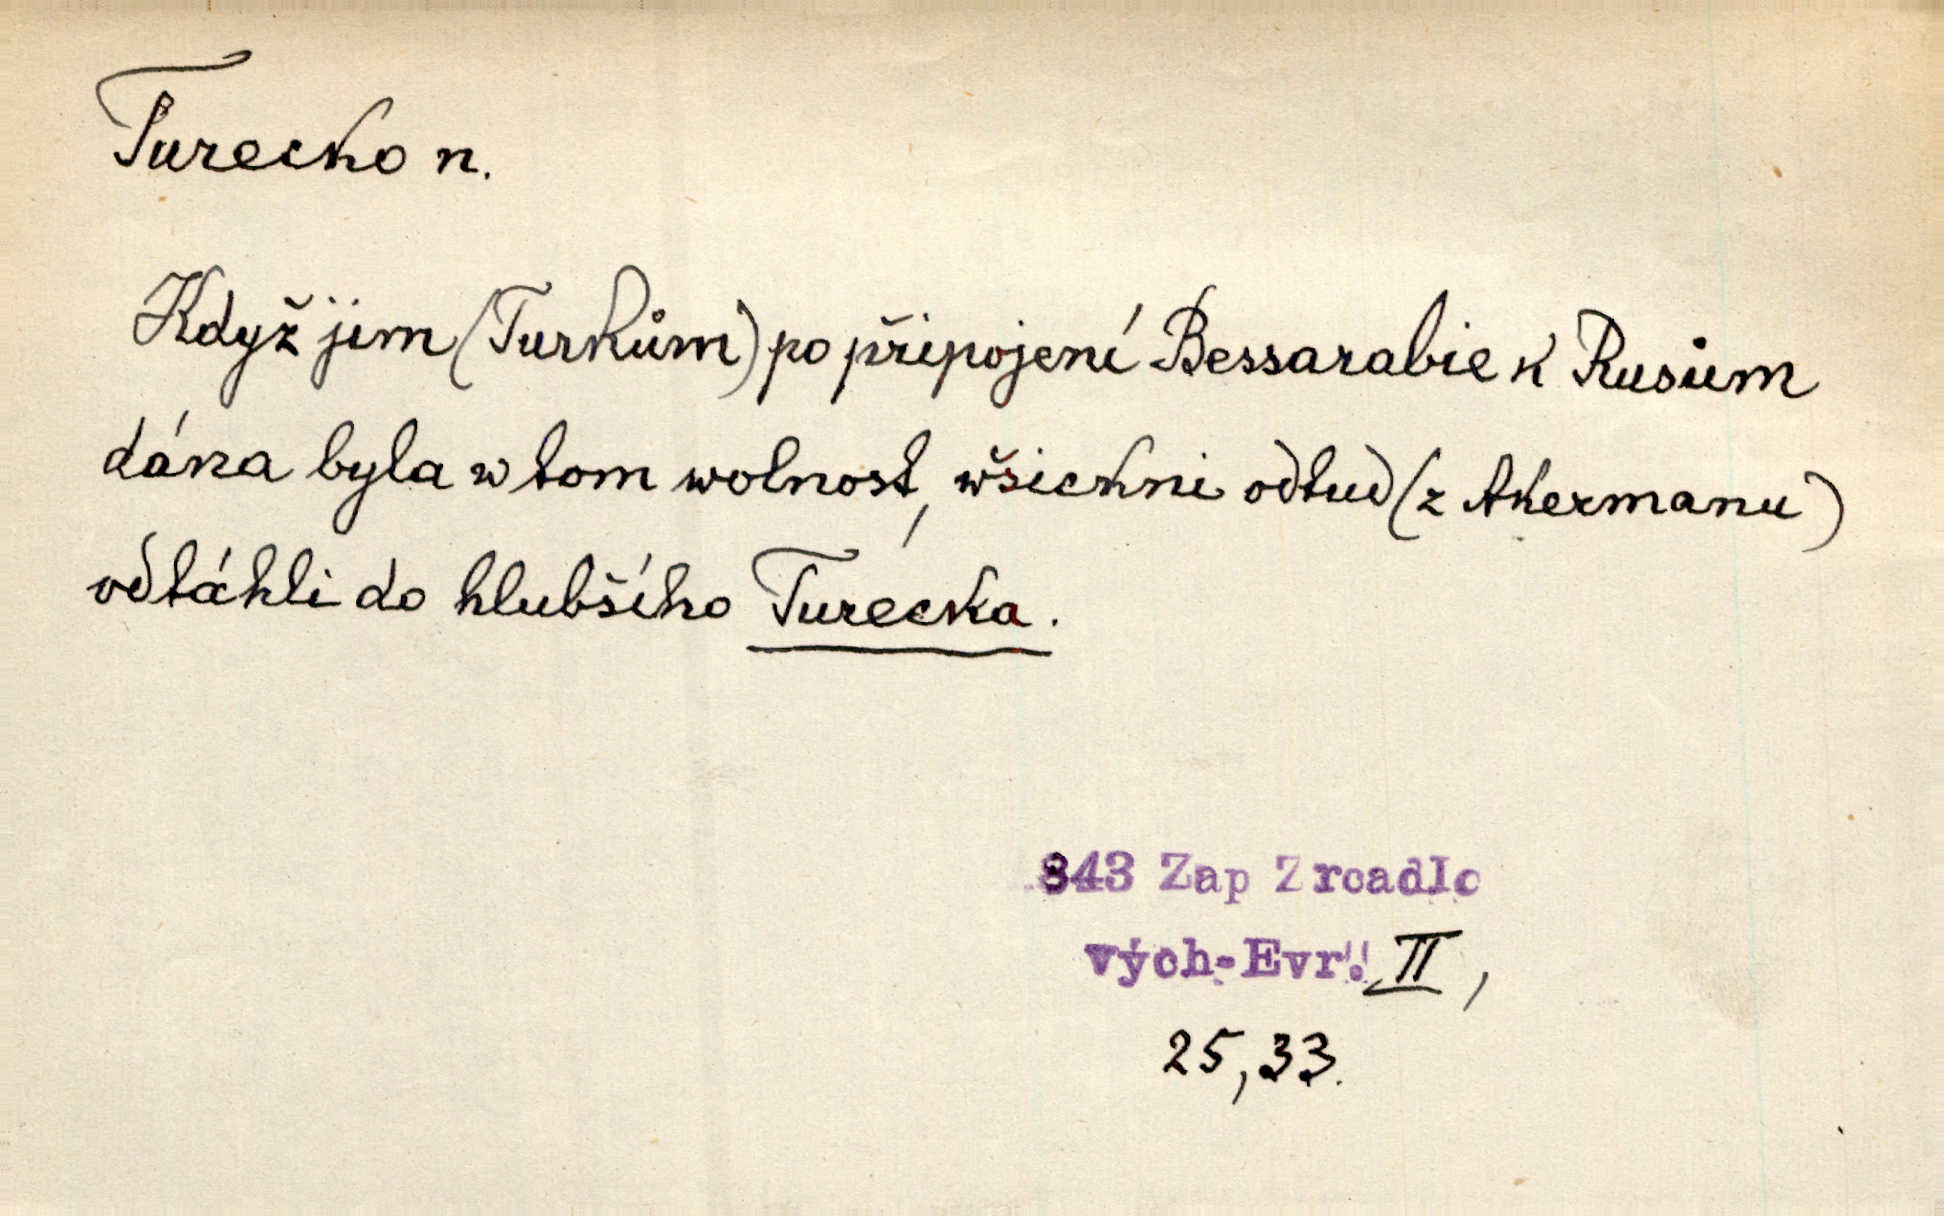 Turecko n.
Když jim (Turkům) po připojení Bessarabie k Rusům
dána byla w tom wolnost, wšichni odtud (z Akermanu)
odtáhli do hlubšího Turécka.
843 Zap Zrcadlo
vých-Evr. II,
25, 33.